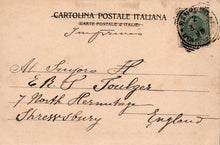 CARTOLINA POSTALE ITALIANA
(CARTE POSTALE D'ITALIE)
Imprimis
Al Signore H
E R T
7 North Hermitage
Shrewsbury
England